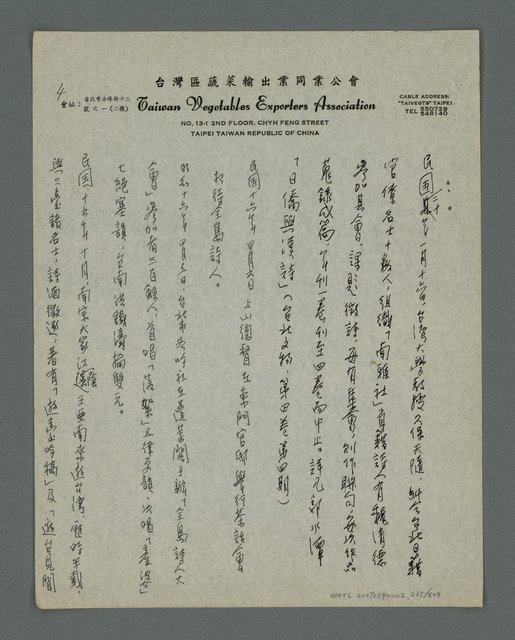 台灣區蔬菜輸出業同業公會
Taiwan Vegetables Exporters Association
會址：台北市赤峰街十三號之一（二樓）
NO. 13-1 2ND FLOOR, CHYH FENG STREET
TAIPEI TAIWAN REPUBLIC OF CHINA
CABLE ADDRESS:
"TAIVEGTS" TAIPEI
TEL 550729
548140
4
民國二十年一月十六日，台灣大學教授久保天隨，糾合台北日籍
官僚名士十數人，組織「南雅社」，省籍詩人有魏清德
參加其會，課題徵詩，每月集會，則作聯句，每次作品
蒐錄成篇，年刊一卷刊至四卷而中止。詳見郭水潭
「日僑與漢詩」（台北文物，第四卷第四期）
民國十六年 四月六日 上山總督出東門官邸舉行茶話會
招待全島詩人。
昭和十六年四月三日，台北市 吟社在蓬萊閣主辦「全島詩人大
會」參加者三百餘人，首唱「落絮」五律 韻，次唱「 婆」
七絕寒韻，台南洪鐵濤掄雙元。
民國十六年十月，南宗大家江蔭遠 南來遊台灣，淹 半載，
與三臺諸名士，詩酒徵逐，著有「遊臺吟稿」及「遊台見聞
NMTL 20070590002, 237/509